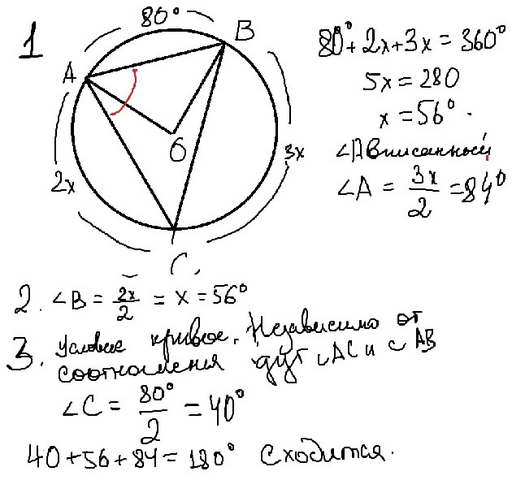 1
80°
A
B
O
2x
3x
C
80° + 2x + 3x = 360°
5x = 280
x = 56°.
∠A вписанный
∠A = 3x/2 = 84°
2. ∠B = 2x/2 = x = 56°
3. Условие кривое. Независимо от
соотношения дуг ◡AC и ◡AB
∠C = 80°/2 = 40°
40 + 56 + 84 = 180° сходится.